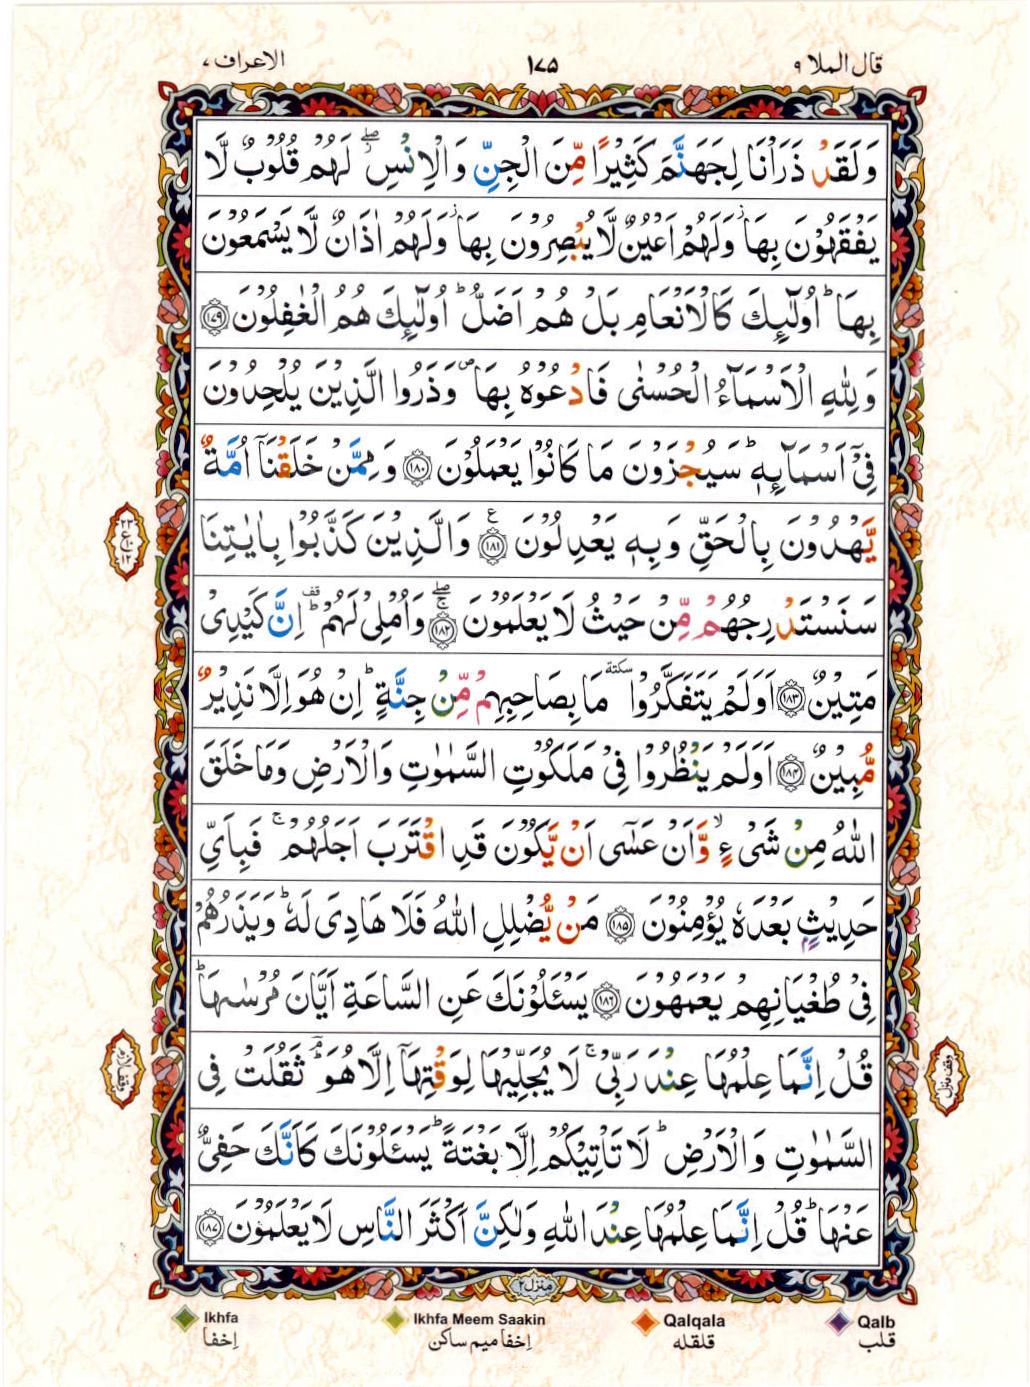 قال الملا ۹
۱۷۵
الاعراف ۷
وَلَقَدْ ذَرَاْنَا لِجَهَنَّمَ كَثِيْرًا مِّنَ الْجِنِّ وَالْاِنْسِ ۖ لَهُمْ قُلُوْبٌ لَّا
يَفْقَهُوْنَ بِهَا ۫ وَلَهُمْ اَعْيُنٌ لَّا يُبْصِرُوْنَ بِهَا ۫ وَلَهُمْ اٰذَانٌ لَّا يَسْمَعُوْنَ
بِهَا ؕ اُولٰٓئِكَ كَالْاَنْعَامِ بَلْ هُمْ اَضَلُّ ؕ اُولٰٓئِكَ هُمُ الْغٰفِلُوْنَ ﴿۱۷۹﴾
وَلِلّٰهِ الْاَسْمَآءُ الْحُسْنٰى فَادْعُوْهُ بِهَا ۪ وَذَرُوا الَّذِيْنَ يُلْحِدُوْنَ
فِيْۤ اَسْمَآئِهٖ ؕ سَيُجْزَوْنَ مَا كَانُوْا يَعْمَلُوْنَ ﴿۱۸۰﴾ وَمِمَّنْ خَلَقْنَاۤ اُمَّةٌ
يَّهْدُوْنَ بِالْحَقِّ وَبِهٖ يَعْدِلُوْنَ ﴿۱۸۱﴾ ع وَالَّذِيْنَ كَذَّبُوْا بِاٰيٰتِنَا
سَنَسْتَدْرِجُهُمْ مِّنْ حَيْثُ لَا يَعْلَمُوْنَ ﴿۱۸۲﴾ وَاُمْلِيْ لَهُمْ ؕ اِنَّ كَيْدِيْ
مَتِيْنٌ ﴿۱۸۳﴾ اَوَلَمْ يَتَفَكَّرُوْا سكتة مَا بِصَاحِبِهِمْ مِّنْ جِنَّةٍ ؕ اِنْ هُوَ اِلَّا نَذِيْرٌ
مُّبِيْنٌ ﴿۱۸۴﴾ اَوَلَمْ يَنْظُرُوْا فِيْ مَلَكُوْتِ السَّمٰوٰتِ وَالْاَرْضِ وَمَا خَلَقَ
اللّٰهُ مِنْ شَيْءٍ ۙ وَّاَنْ عَسٰۤى اَنْ يَّكُوْنَ قَدِ اقْتَرَبَ اَجَلُهُمْ ۚ فَبِاَيِّ
حَدِيْثٍ بَعْدَهٗ يُؤْمِنُوْنَ ﴿۱۸۵﴾ مَنْ يُّضْلِلِ اللّٰهُ فَلَا هَادِيَ لَهٗ ؕ وَيَذَرُهُمْ
فِيْ طُغْيَانِهِمْ يَعْمَهُوْنَ ﴿۱۸۶﴾ يَسْئَلُوْنَكَ عَنِ السَّاعَةِ اَيَّانَ مُرْسٰىهَا ؕ
قُلْ اِنَّمَا عِلْمُهَا عِنْدَ رَبِّيْ ۚ لَا يُجَلِّيْهَا لِوَقْتِهَاۤ اِلَّا هُوَ ؕ ثَقُلَتْ فِي
السَّمٰوٰتِ وَالْاَرْضِ ؕ لَا تَاْتِيْكُمْ اِلَّا بَغْتَةً ؕ يَسْئَلُوْنَكَ كَاَنَّكَ حَفِيٌّ
عَنْهَا ؕ قُلْ اِنَّمَا عِلْمُهَا عِنْدَ اللّٰهِ وَلٰكِنَّ اَكْثَرَ النَّاسِ لَا يَعْلَمُوْنَ ﴿۱۸۷﴾
وقف لازم
وقف منزل
منزل ۲
Ikhfa
اِخفا
Ikhfa Meem Saakin
اِخفا میم ساکن
Qalqala
قلقله
Qalb
قلب